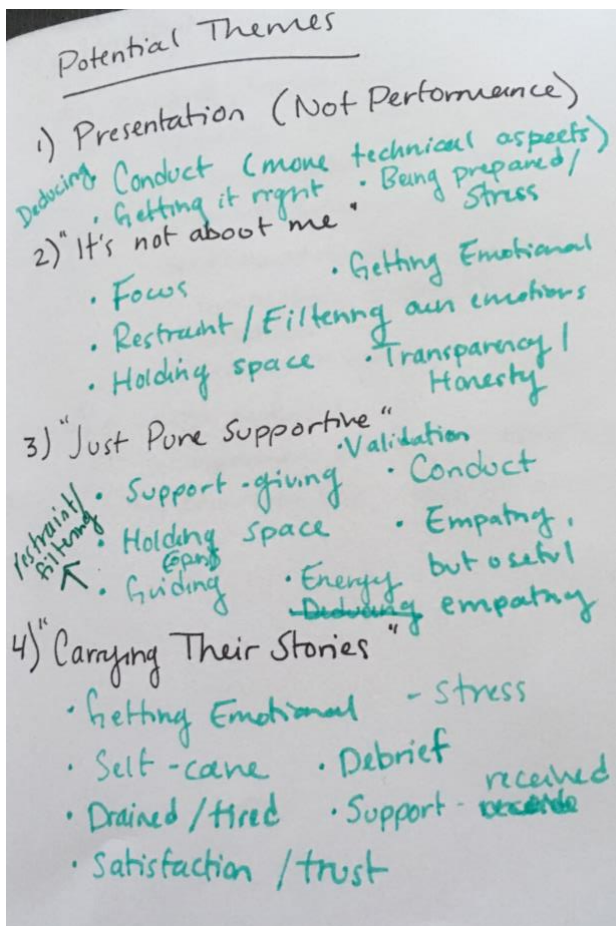 Potential Themes
1) Presentation (Not Performance)
Deducing Conduct (more technical aspects)
• Getting it right • Being prepared/
Stress
2) "It's not about me"
• Focus • Getting Emotional
• Restraint / Filtering own emotions
• Holding space • Transparency /
Honesty
3) "Just Pure Supportive"
• Validation
• Support-giving • Conduct
restraint/
filtering
• Holding space • Empathy,
but useful
• Guiding • Energy
Deducing empathy
4) "Carrying Their Stories"
• Getting Emotional - Stress
• Self-care • Debrief
• Drained / tired • Support - received
• Satisfaction / trust